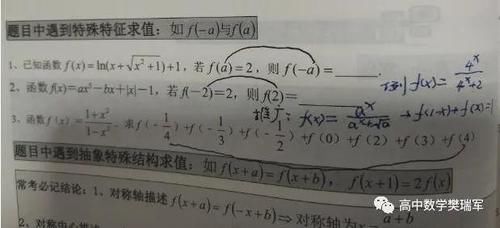 题目中遇到特殊特征求值：如 f(-a)与f(a)
1、已知函数 f(x)=ln(x+√(x²+1))+1，若 f(a)=2，则 f(-a)=______.
例 f(x)=4^x/(4^x+2)
2、函数 f(x)=ax³-bx+|x|-1，若 f(-2)=2，则 f(2)=______
推广：f(x)=a^x/(a^x+√a) → f(1-x)+f(x)=1
3、函数 f(x)=(1+x²)/(1-x²)，求 f(-1/4)+f(-1/3)+f(-1/2)+f(0)+f(2)+f(3)+f(4)
题目中遇到抽象特殊结构求值：如 f(x+a)=f(x+b)，f(x+1)=2f(x)
常考必记结论：1、对称轴描述 f(x+a)=f(-x+b)⇒对称轴为x=(a+b)
2、对称中心描述
高中数学樊瑞军